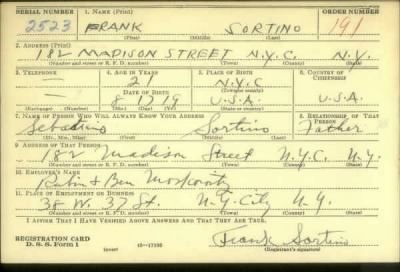 SERIAL NUMBER 1. NAME (Print) ORDER NUMBER
2523 FRANK SORTINO 191
(First) (Middle) (Last)
2. ADDRESS (Print)
182 MADISON STREET N.Y.C. N.Y.
(Number and street or R. F. D. number) (Town) (County) (State)
3. TELEPHONE 4. AGE IN YEARS 5. PLACE OF BIRTH 6. COUNTRY OF CITIZENSHIP
21 N.Y.C
DATE OF BIRTH (Town or county)
8 1 1919 U.S.A. U.S.A.
(Exchange) (Number) (Mo.) (Day) (Yr.) (State or country)
7. NAME OF PERSON WHO WILL ALWAYS KNOW YOUR ADDRESS 8. RELATIONSHIP OF THAT PERSON
Sebastino Sortino Father
(Mr., Mrs., Miss) (First) (Middle) (Last)
9. ADDRESS OF THAT PERSON
182 Madison Street N.Y.C. N.Y.
(Number and street or R. F. D. number) (Town) (County) (State)
10. EMPLOYER'S NAME
Rubin & Ben Moskowitz
11. PLACE OF EMPLOYMENT OR BUSINESS
38 W. 37 St. N.Y. City N.Y.
(Number and street or R. F. D. number) (Town) (County) (State)
I AFFIRM THAT I HAVE VERIFIED ABOVE ANSWERS AND THAT THEY ARE TRUE.
REGISTRATION CARD
D. S. S. Form 1 (over) Frank Sortino
(Registrant's signature)